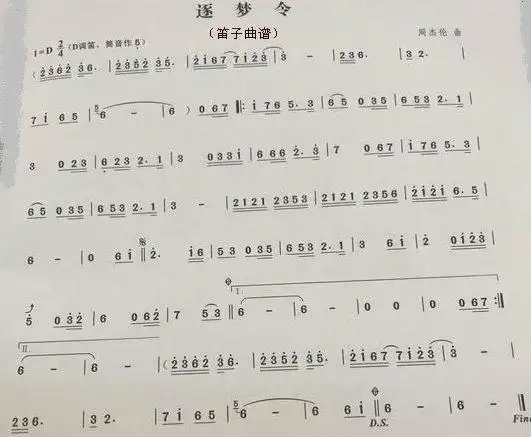 逐梦令
(笛子曲谱)
1=D 2/4 (D调笛，筒音作5)
周杰伦 曲
(2362 36. | 2352 35. | 2167 7123 | 3 - | 236. | 32. |
71 65 | 56 - | 6 ) 067 ‖: i 76 5. 3 | 65 035 | 653 2. 1 |
3 023 | 623 2. 1 | 3 033i | 666 2. 3 | 7 067 | i 76 5. 3 |
65 035 | 653 2. 1 | 3 - | 2121 2353 | 2121 2356 | 2121 6. 5 |
6 - | 0 6i ‖ 2. i6 | 53 035 | 653 2. 1 | 3 6i | 2. 0i23 |
5 032 | 6 062 | 7 53 ‖ I. 6 - | 6 - | 0 0 | 0 067 :‖
II. 6 - | 6 - | (2362 36. | 2352 35. | 2167 7123 | 3 - |
236. | 32. | 7i 65 | 56 - | 6 6i ‖ 6 - | 6 - ‖
D.S. Fine